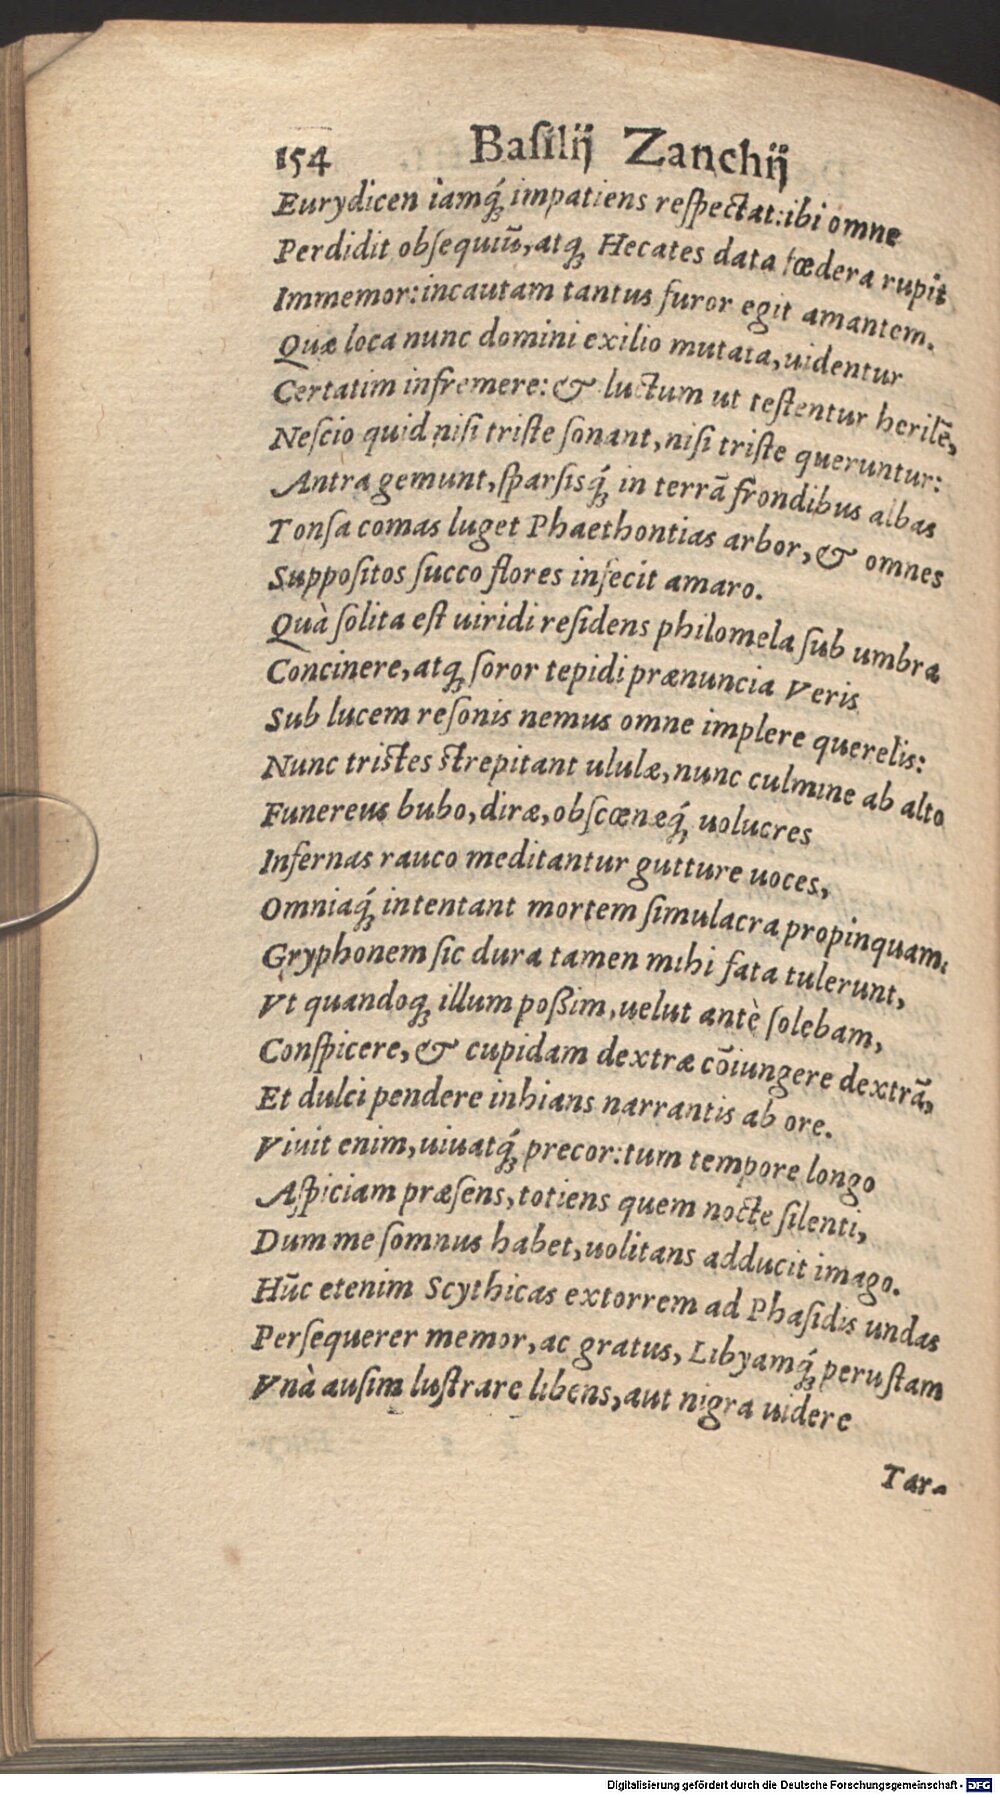 154 Baſilij Zanchij
Eurydicen iamq́; impatiens reſpectat: ibi omne
Perdidit obſequiū, atq; Hecates data fœdera rupit
Immemor: incautam tantus furor egit amantem.
Quæ loca nunc domini exilio mutata, uidentur
Certatim infremere: & luctum ut teſtentur herilē,
Neſcio quid niſi triſte ſonant, niſi triſte queruntur:
Antra gemunt, ſparſisq́; in terrā frondibus albas
Tonſa comas luget Phaethontias arbor, & omnes
Suppoſitos ſucco flores infecit amaro.
Quà ſolita eſt uiridi reſidens philomela ſub umbra
Concinere, atq; ſoror tepidi prænuncia Veris
Sub lucem reſonis nemus omne implere querelis:
Nunc triſtes ſtrepitant ululæ, nunc culmine ab alto
Funereus bubo, diræ, obſcœnæq́; uolucres
Infernas rauco meditantur gutture uoces,
Omniaq́; intentant mortem ſimulacra propinquam.
Gryphonem ſic dura tamen mihi fata tulerunt,
Vt quandoq; illum poßim, uelut antè ſolebam,
Conſpicere, & cupidam dextræ cōiungere dextrā,
Et dulci pendere inhians narrantis ab ore.
Viuit enim, uiuatq́; precor: tum tempore longo
Aſpiciam præſens, totiens quem nocte ſilenti,
Dum me ſomnus habet, uolitans adducit imago.
Hūc etenim Scythicas extorrem ad Phaſidis undas
Perſequerer memor, ac gratus, Libyamq́; peruſtam
Vnà auſim luſtrare libens, aut nigra uidere
Tar-
Digitalisierung gefördert durch die Deutsche Forschungsgemeinschaft - DFG